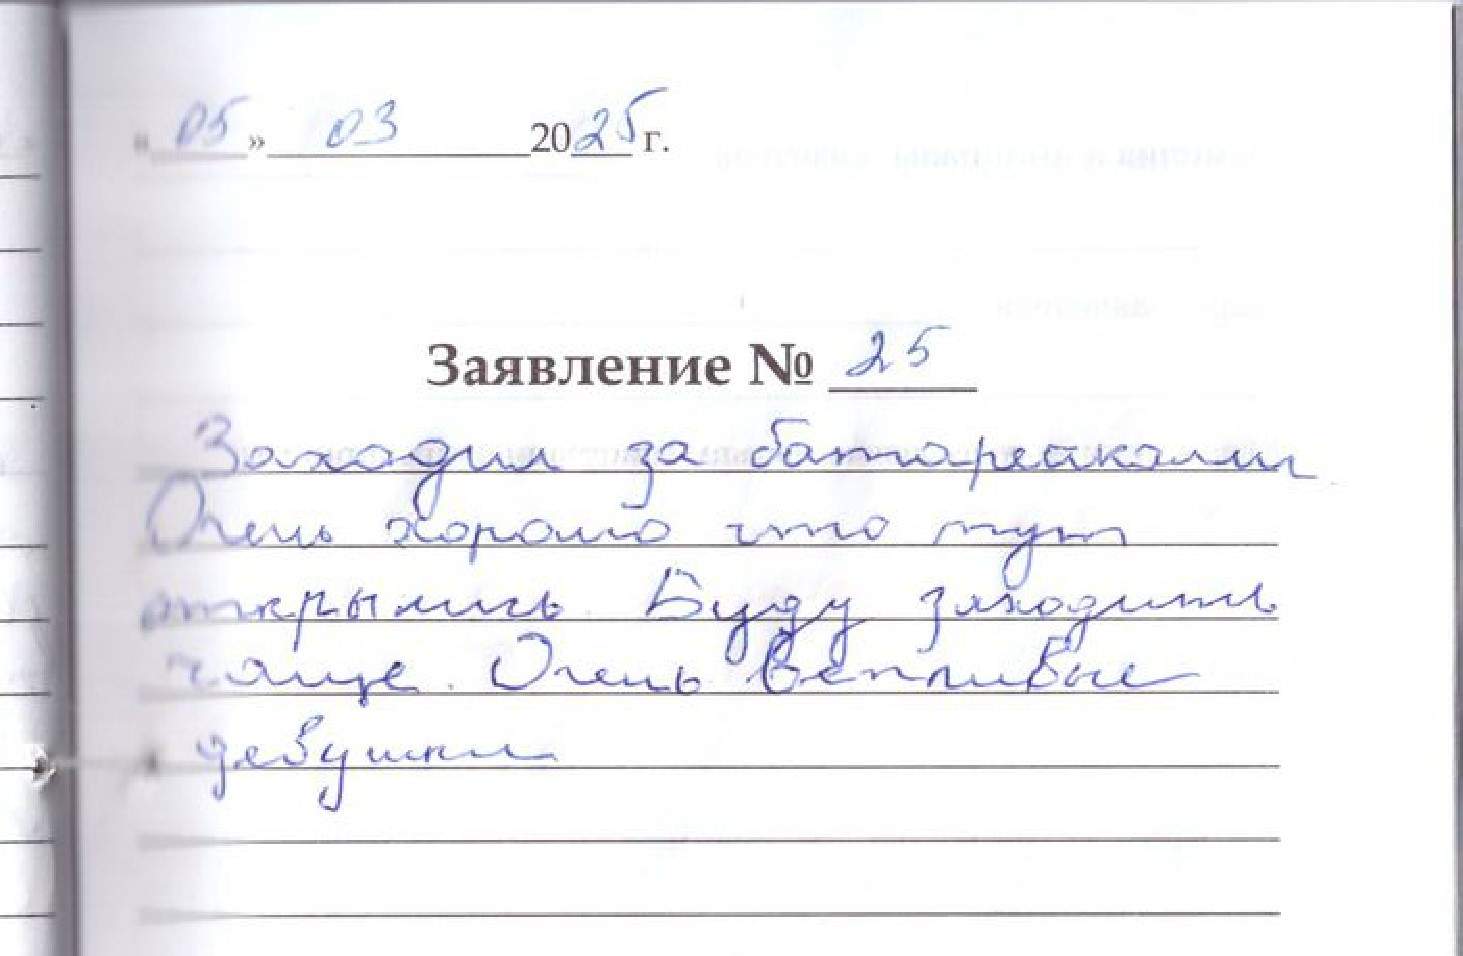 «05» 03 2025 г.
Заявление № 25
Заходил за батарейками
Очень хорошо что тут
открылись. Буду заходить
чаще. Очень вежливые
девушки